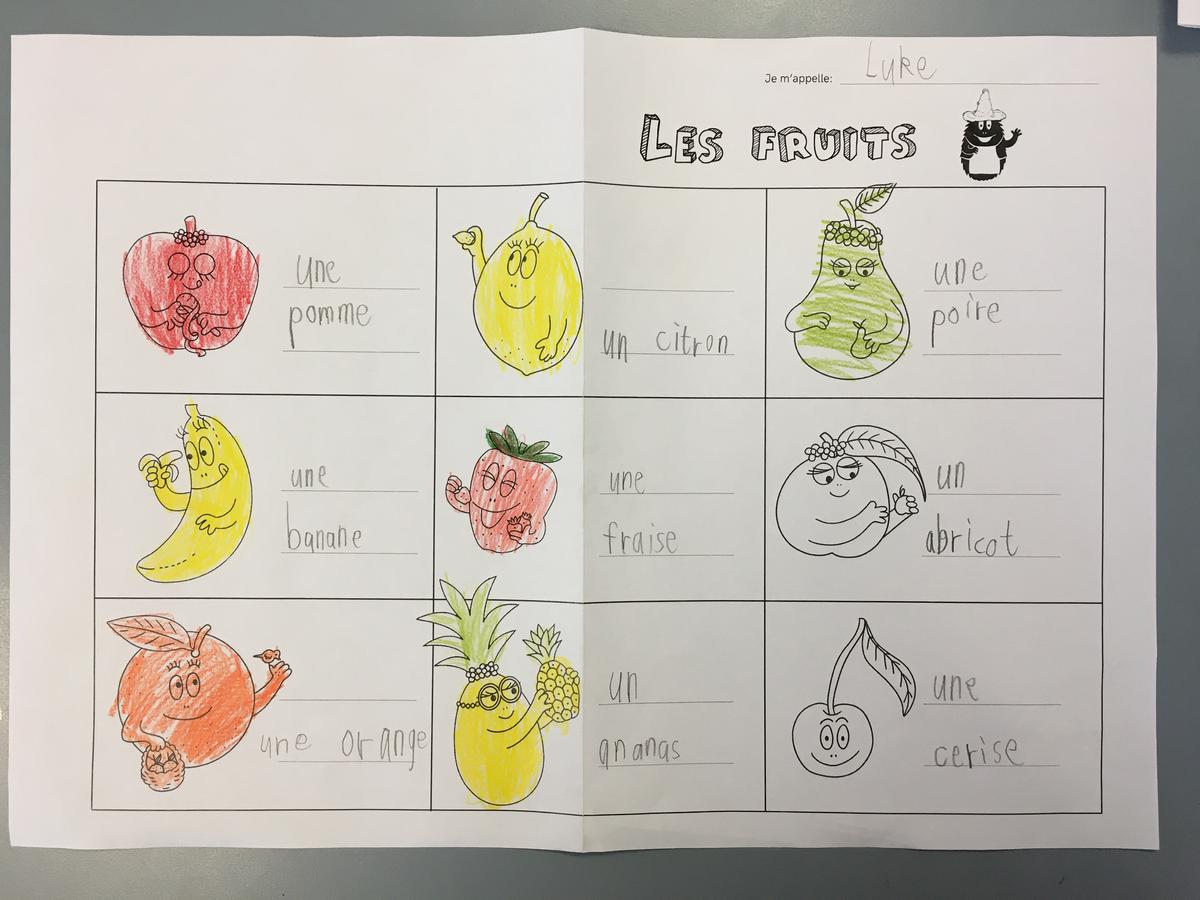 Je m'appelle: Luke
LES FRUITS
une
pomme
un citron
une
poire
une
banane
une
fraise
un
abricot
une orange
un
ananas
une
cerise